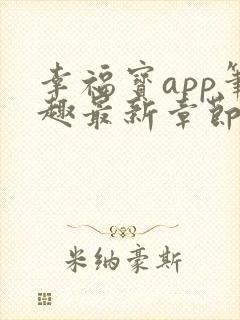 幸福宝app
趣最新章節
米纳豪斯